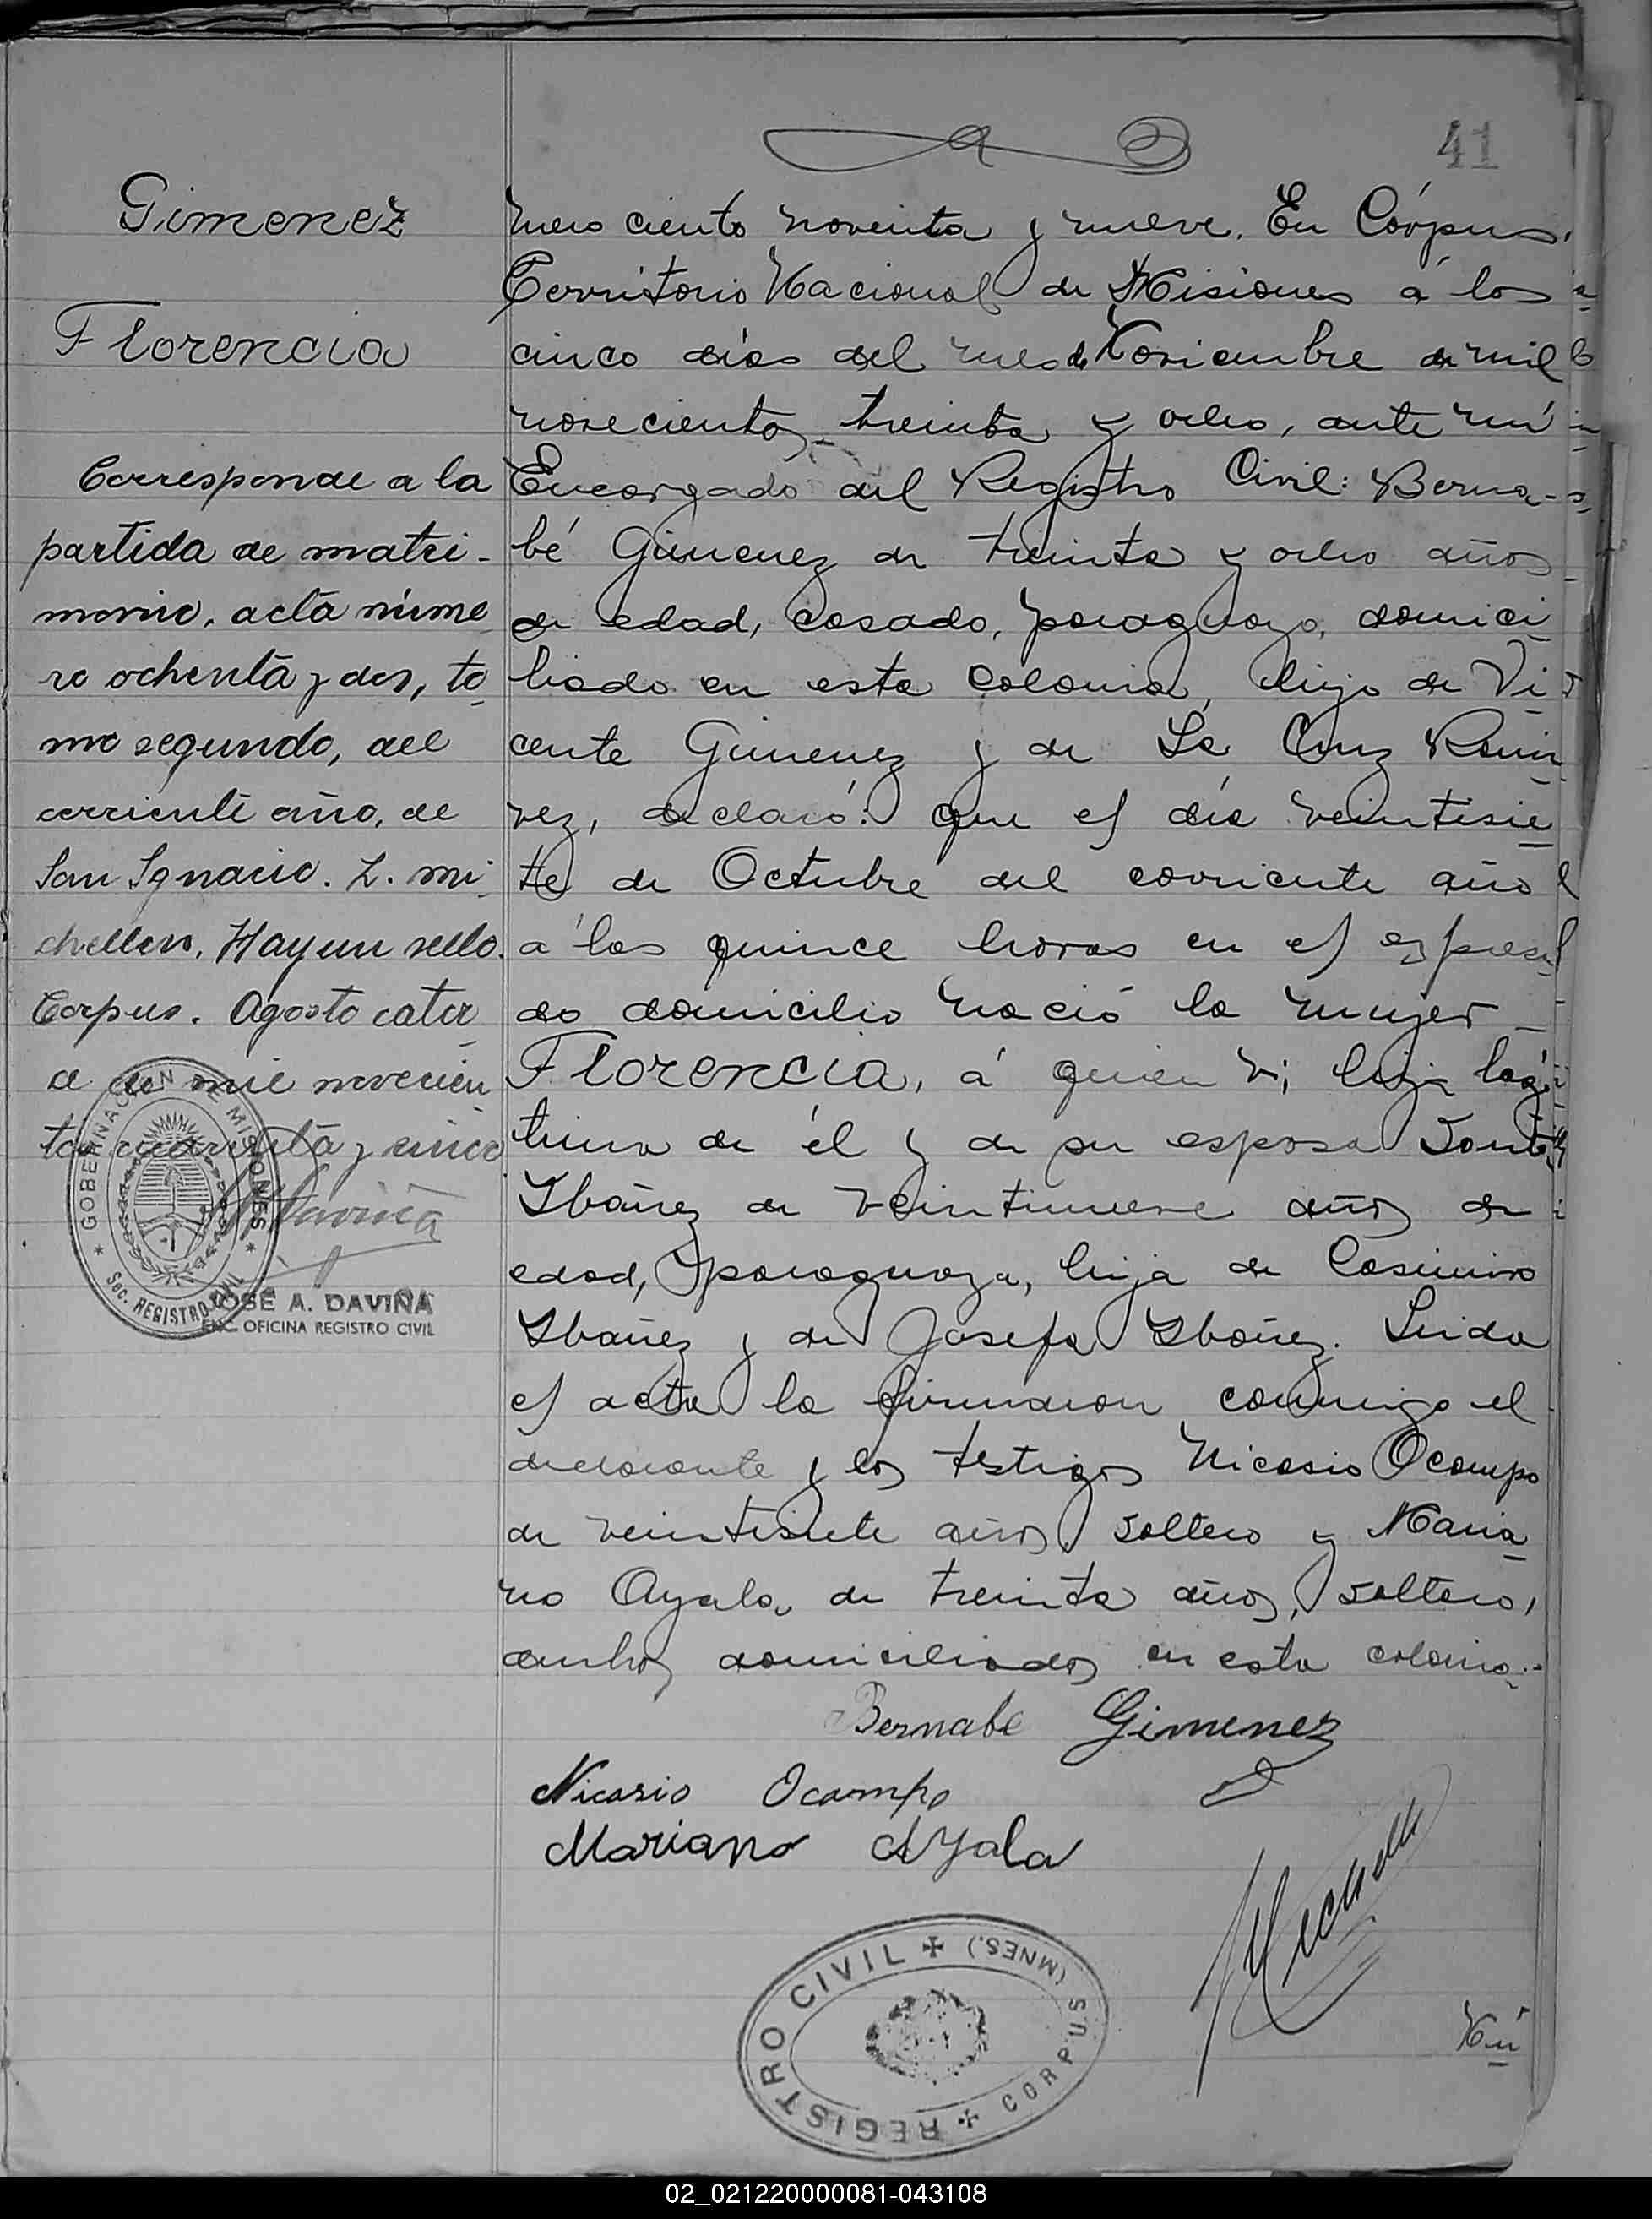 41
Gimenez
Florencia
Corresponde a la
partida de matri-
monio, acta núme
ro ochenta y dos, to
mo segundo, del
corriente año, de
San Ignacio. L. Mi
chelles. Hay un sello.
Corpus. Agosto cator
ce de mil novecien
tos cuarenta y cinco
GOBERNACION DE MISIONES
Sec. REGISTRO CIVIL
JOSÉ A. DAVIÑA
ENC. OFICINA REGISTRO CIVIL
mero ciento noventa y nueve. En Córpus,
Territorio Nacional de Misiones á los
cinco días del mes de Noviembre de mil
novecientos treinta y ocho, ante mí
Encargado del Registro Civil: Berna-
bé Gimenez de treinta y ocho años
de edad, casado, paraguayo, domici
liado en esta colonia, hijo de Vi
cente Gimenez y de La Cruz Rami
rez, declaró: que el día veintisie
te de Octubre del corriente año
a las quince horas en el expresa
do domicilio nació la mujer
Florencia, á quien vi, hija legí
tima de él y de su esposa
Ibañez de veintinueve años de
edad, paraguaya, hija de Casimiro
Ibañez y de Josefa Ibañez. Leida
el acta la firmaron conmigo el
declarante y los testigos Nicasio Ocampo
de veintisiete años soltero y Maria
no Ayala de treinta años, soltero,
ambos domiciliados en esta colonia.
Bernabe Gimenez
Nicasio Ocampo
Mariano Ayala
REGISTRO CIVIL
CORPUS (MNES.)
Nú
02_021220000081-043108